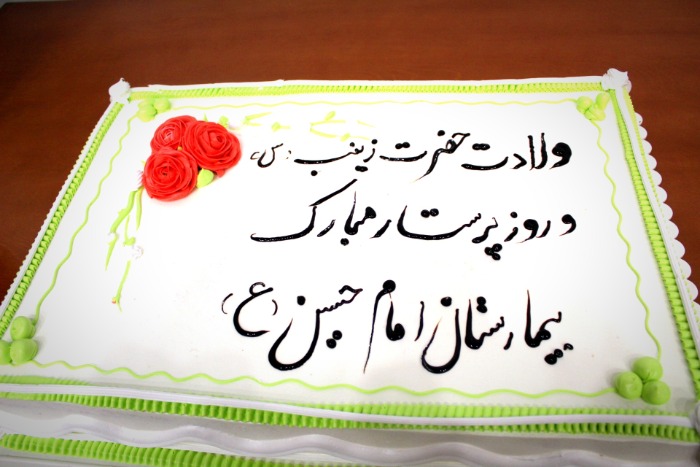 ولادت حضرت زینب (س)
و روز پرستار مبارک
بیمارستان امام حسین (ع)